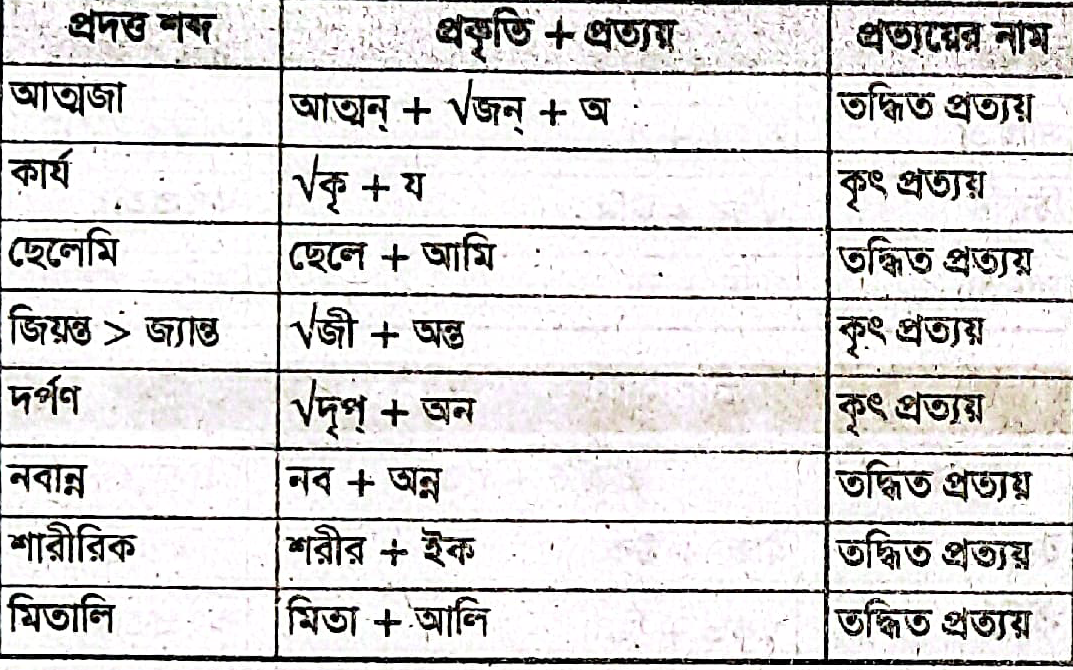 প্রদত্ত শব্দ প্রকৃতি + প্রত্যয় প্রত্যয়ের নাম
আত্মজা আত্মন্ + √জন্ + অ তদ্ধিত প্রত্যয়
কার্য √কৃ + য কৃৎ প্রত্যয়
ছেলেমি ছেলে + আমি তদ্ধিত প্রত্যয়
জিয়ন্ত > জ্যান্ত √জী + অন্ত কৃৎ প্রত্যয়
দর্পণ √দৃপ্ + অন কৃৎ প্রত্যয়
নবান্ন নব + অন্ন তদ্ধিত প্রত্যয়
শারীরিক শরীর + ইক তদ্ধিত প্রত্যয়
মিতালি মিতা + আলি তদ্ধিত প্রত্যয়